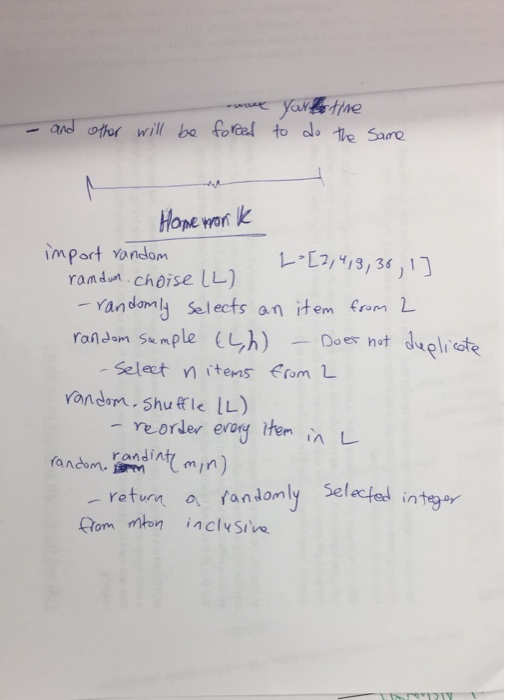 your time
- and other will be forced to do the same
Homework
import random L=[2,4,9,36,1]
random.choise (L)
- randomly selects an item from L
random sample (L,h) - Does not duplicate
- Select n items from L
random.shuffle (L)
- reorder every item in L
random. randint(m,n)
- return a randomly selected integer
from mton inclusive